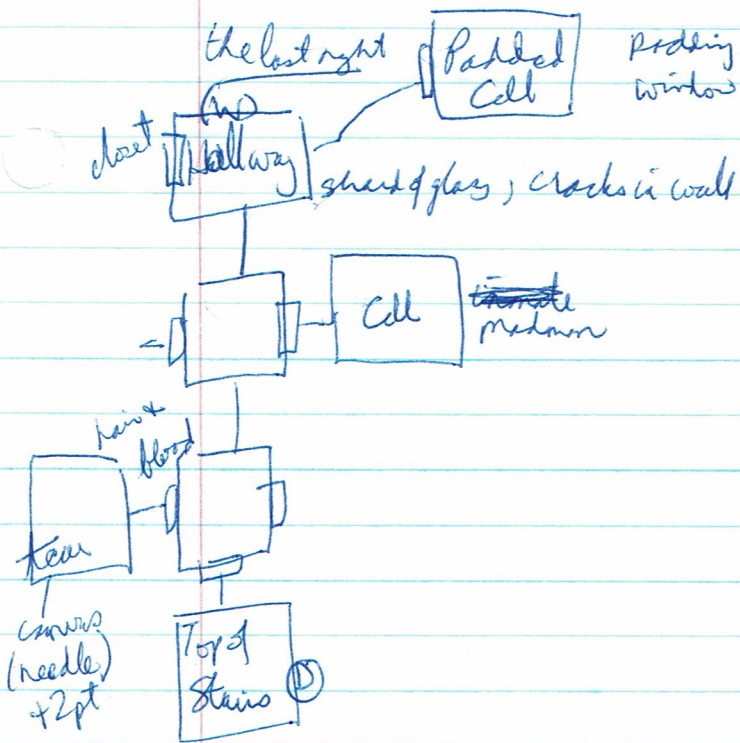 the last night
Padded
Cell
padding
window
closet
Hallway
shard of glass, cracks in wall
Cell
madman
blood
canvas
(needle)
+2pt
Top of
Stairs
D